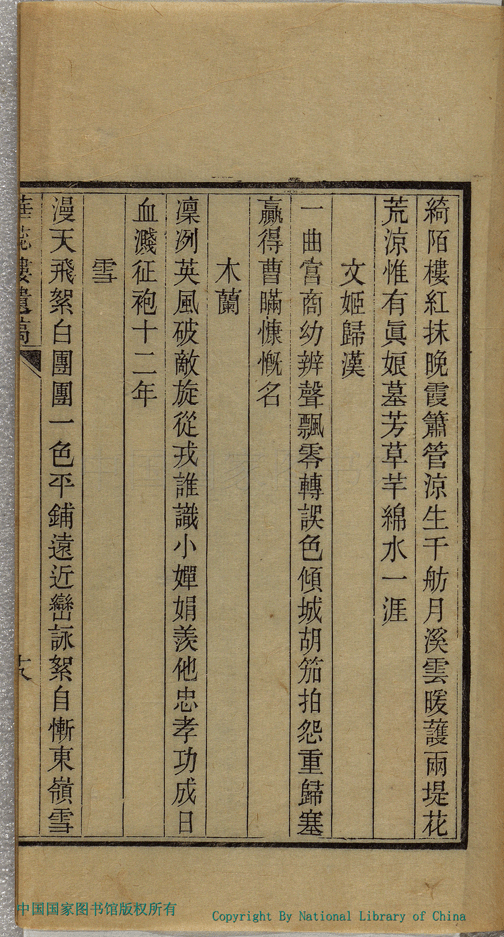 綺陌樓紅抹晚霞簫管涼生千舫月溪雲暖護兩堤花
荒涼惟有眞娘墓芳草芊綿水一涯
文姬歸漢
一曲宮商幼辨聲飄零轉誤色傾城胡笳拍怨重歸塞
贏得曹瞞慷慨名
木蘭
凜冽英風破敵旋從戎誰識小嬋娟羨他忠孝功成日
血濺征袍十二年
雪
漫天飛絮白團團一色平鋪遠近巒詠絮自慚東嶺雪
樓遺稿
中国国家图书馆版权所有
Copyright By National Library of China